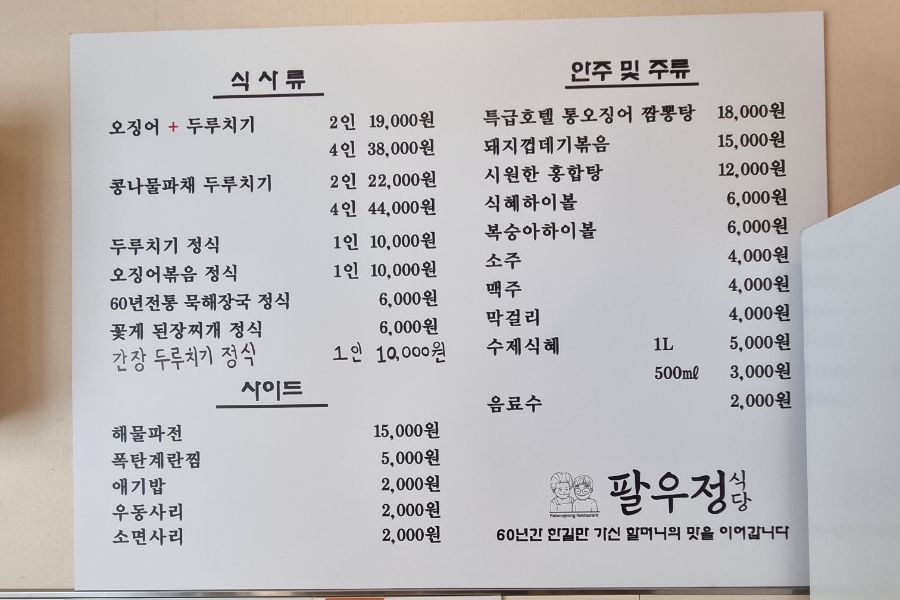 식사류
오징어 + 두루치기 2인 19,000원
4인 38,000원
콩나물파채 두루치기 2인 22,000원
4인 44,000원
두루치기 정식 1인 10,000원
오징어볶음 정식 1인 10,000원
60년전통 묵해장국 정식 6,000원
꽃게 된장찌개 정식 6,000원
간장 두루치기 정식 1인 10,000원
사이드
해물파전 15,000원
폭탄계란찜 5,000원
애기밥 2,000원
우동사리 2,000원
소면사리 2,000원
안주 및 주류
특급호텔 통오징어 짬뽕탕 18,000원
돼지껍데기볶음 15,000원
시원한 홍합탕 12,000원
식혜하이볼 6,000원
복숭아하이볼 6,000원
소주 4,000원
맥주 4,000원
막걸리 4,000원
수제식혜 1L 5,000원
500㎖ 3,000원
음료수 2,000원
팔우정식당
60년간 한길만 가신 할머니의 맛을 이어갑니다